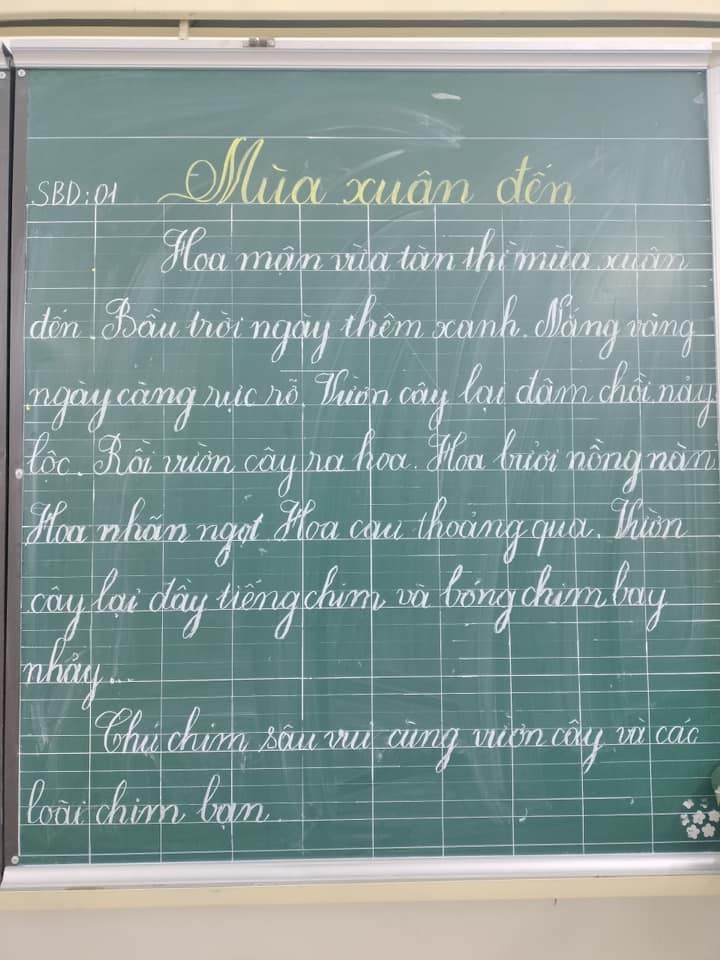 Mùa xuân đến
SBD: 01
Hoa mận vừa tàn thì mùa xuân
đến. Bầu trời ngày thêm xanh. Nắng vàng
ngày càng rực rỡ. Vườn cây lại đâm chồi nảy
lộc. Rồi vườn cây ra hoa. Hoa bưởi nồng nàn.
Hoa nhãn ngọt Hoa cau thoảng qua. Vườn
cây lại đầy tiếng chim và bóng chim bay
nhảy...
Chú chim sâu vui cùng vườn cây và các
loài chim bạn.